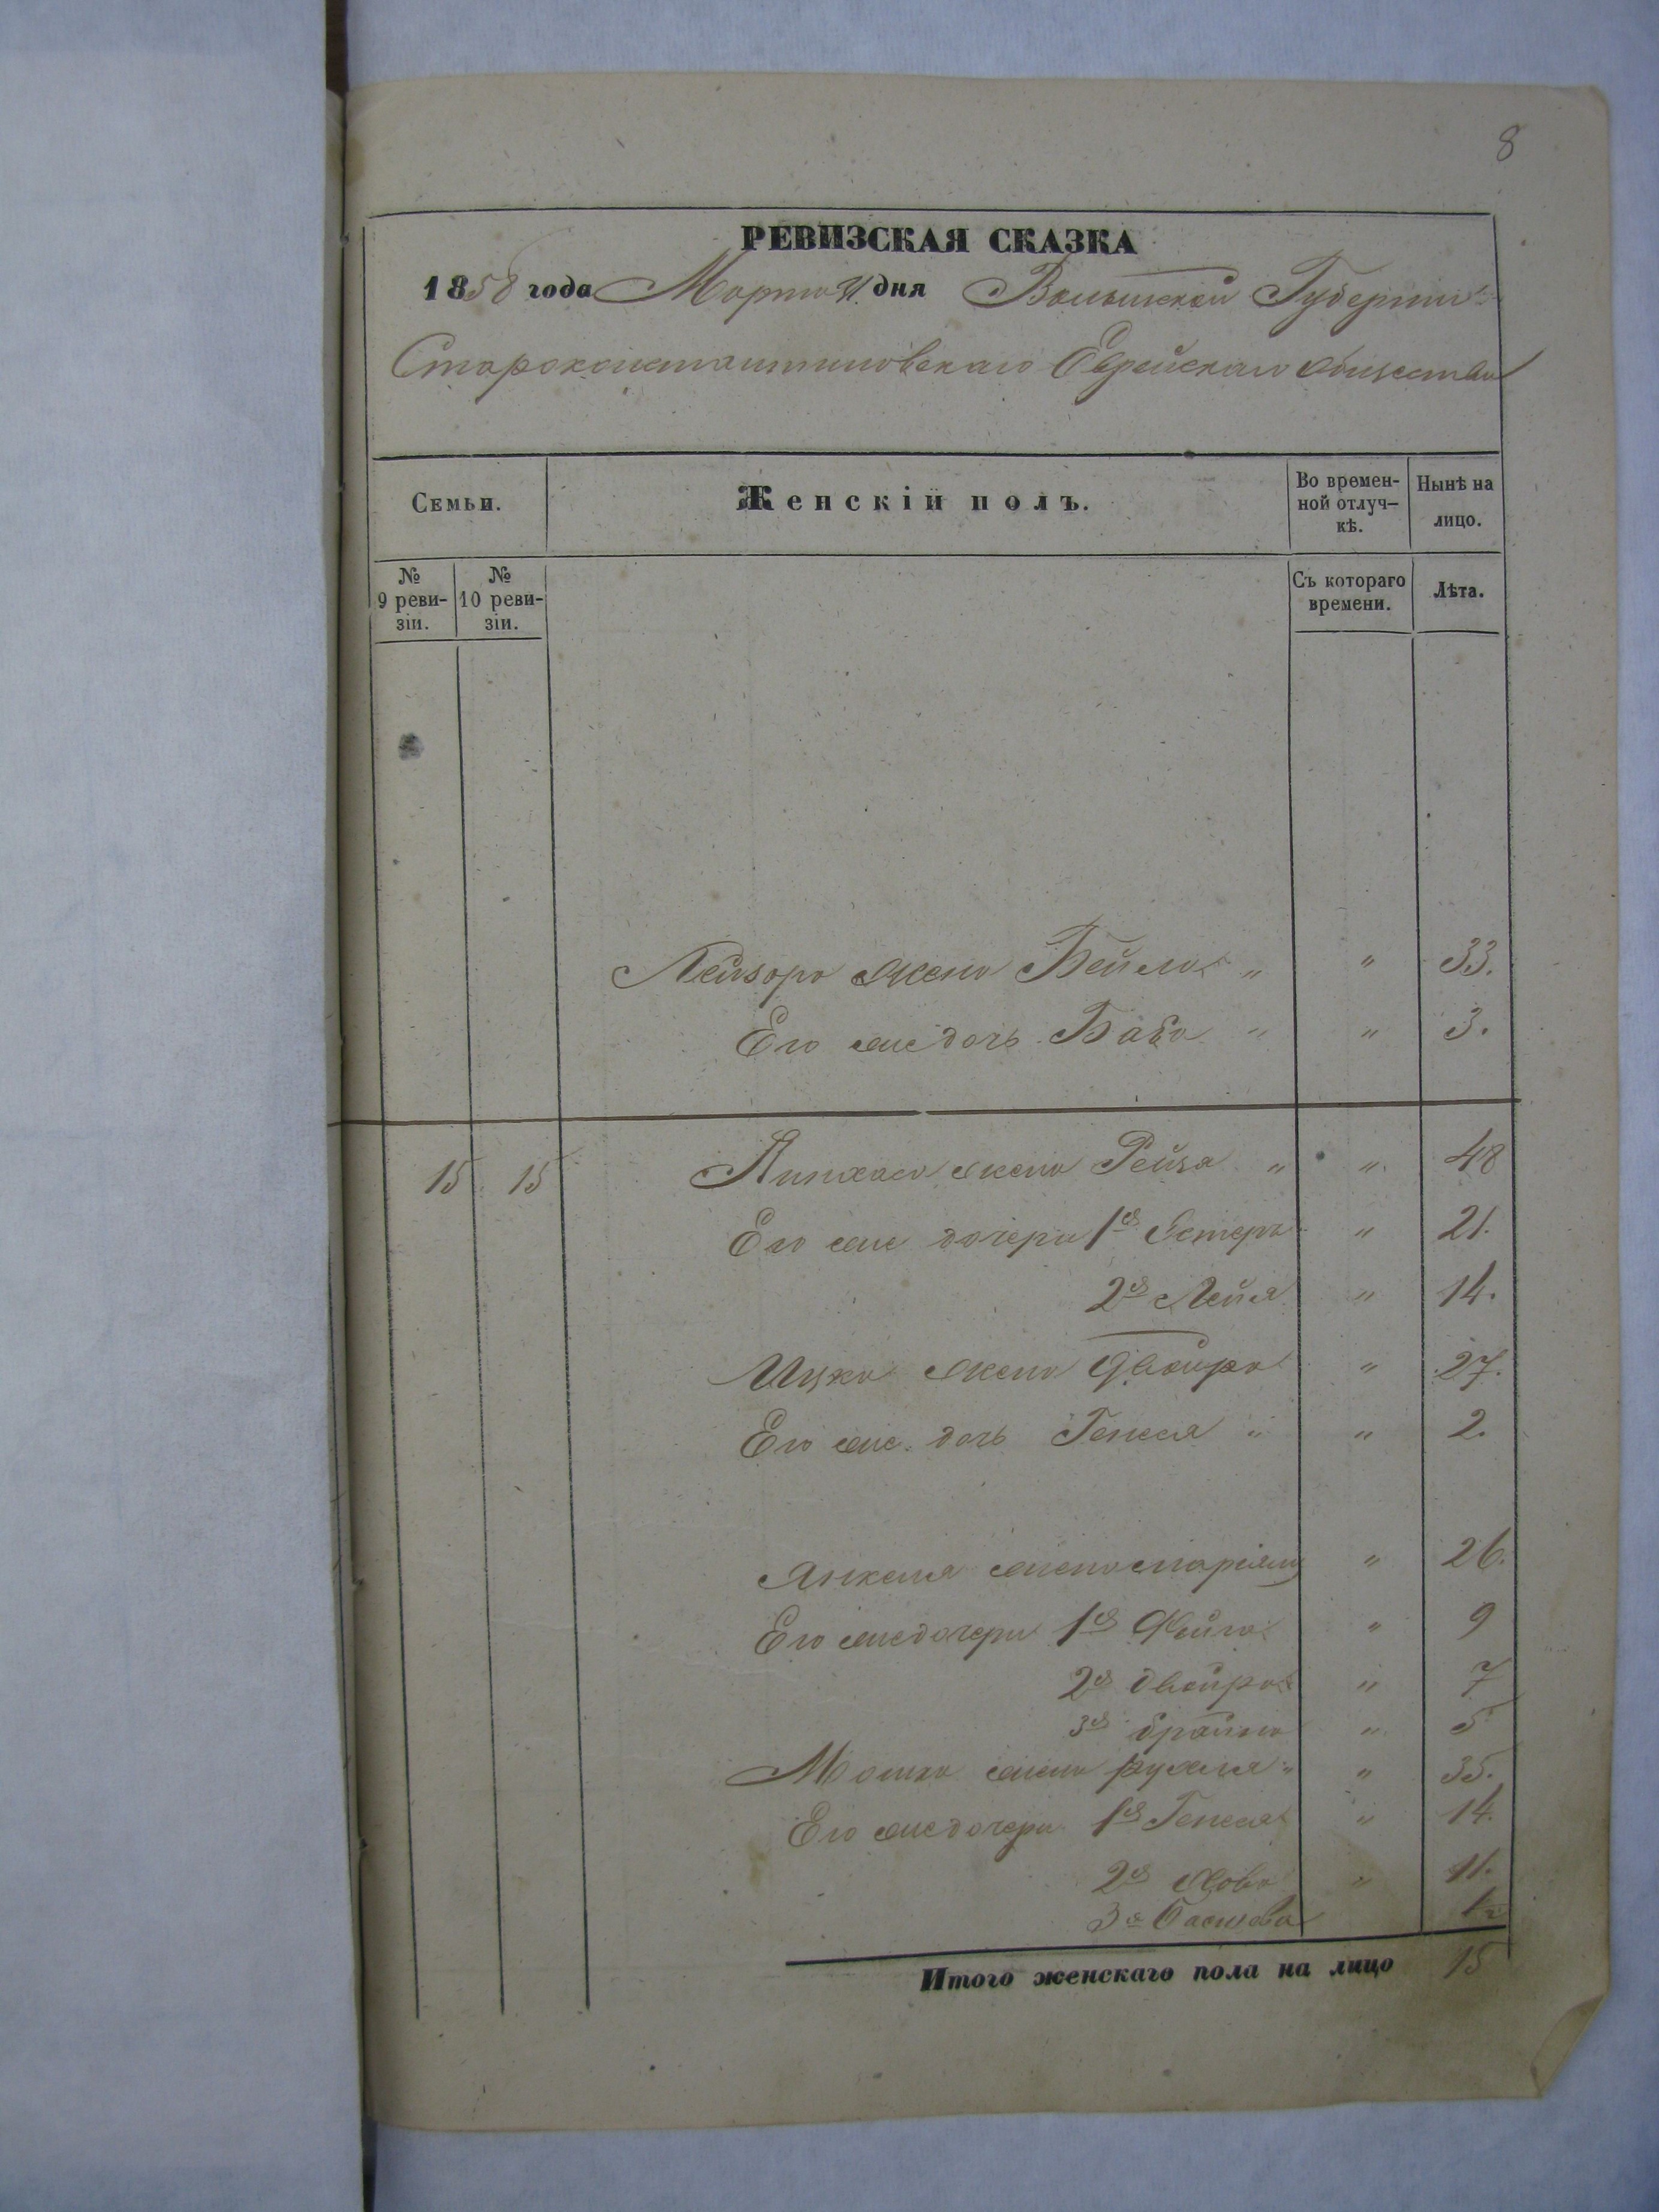 8
РЕВИЗСКАЯ СКАЗКА
1858 года Марта 31 дня Волынской Губернии
Староконстантиновскаго Еврейскаго общества
Семьи. Женскій полъ. Во времен- Нынѣ на
ной отлуч- лицо.
кѣ.
№ № Съ котораго Лѣта.
9 реви- 10 реви- времени.
зіи. зіи.
Лейзора жена Бейла " " 33.
Его же дочь Баба " " 3.
15 15 Пинхаса жена Рейза " " 48
Его же дочери 1я Естеръ " 21.
2я Лейя " 14.
Ицка жена Двойра " 27.
Его же дочь Генся " " 2.
Янкеля жена Маріямъ " 26.
Его же дочери 1я Фейга " 9
2я Двойра " 7
3я Брайна " 5
Мошка жена Рухля " " 35.
Его же дочери 1я Генся " 14.
2я Хова " 11.
3я Басшева
Итого женскаго пола на лицо 15